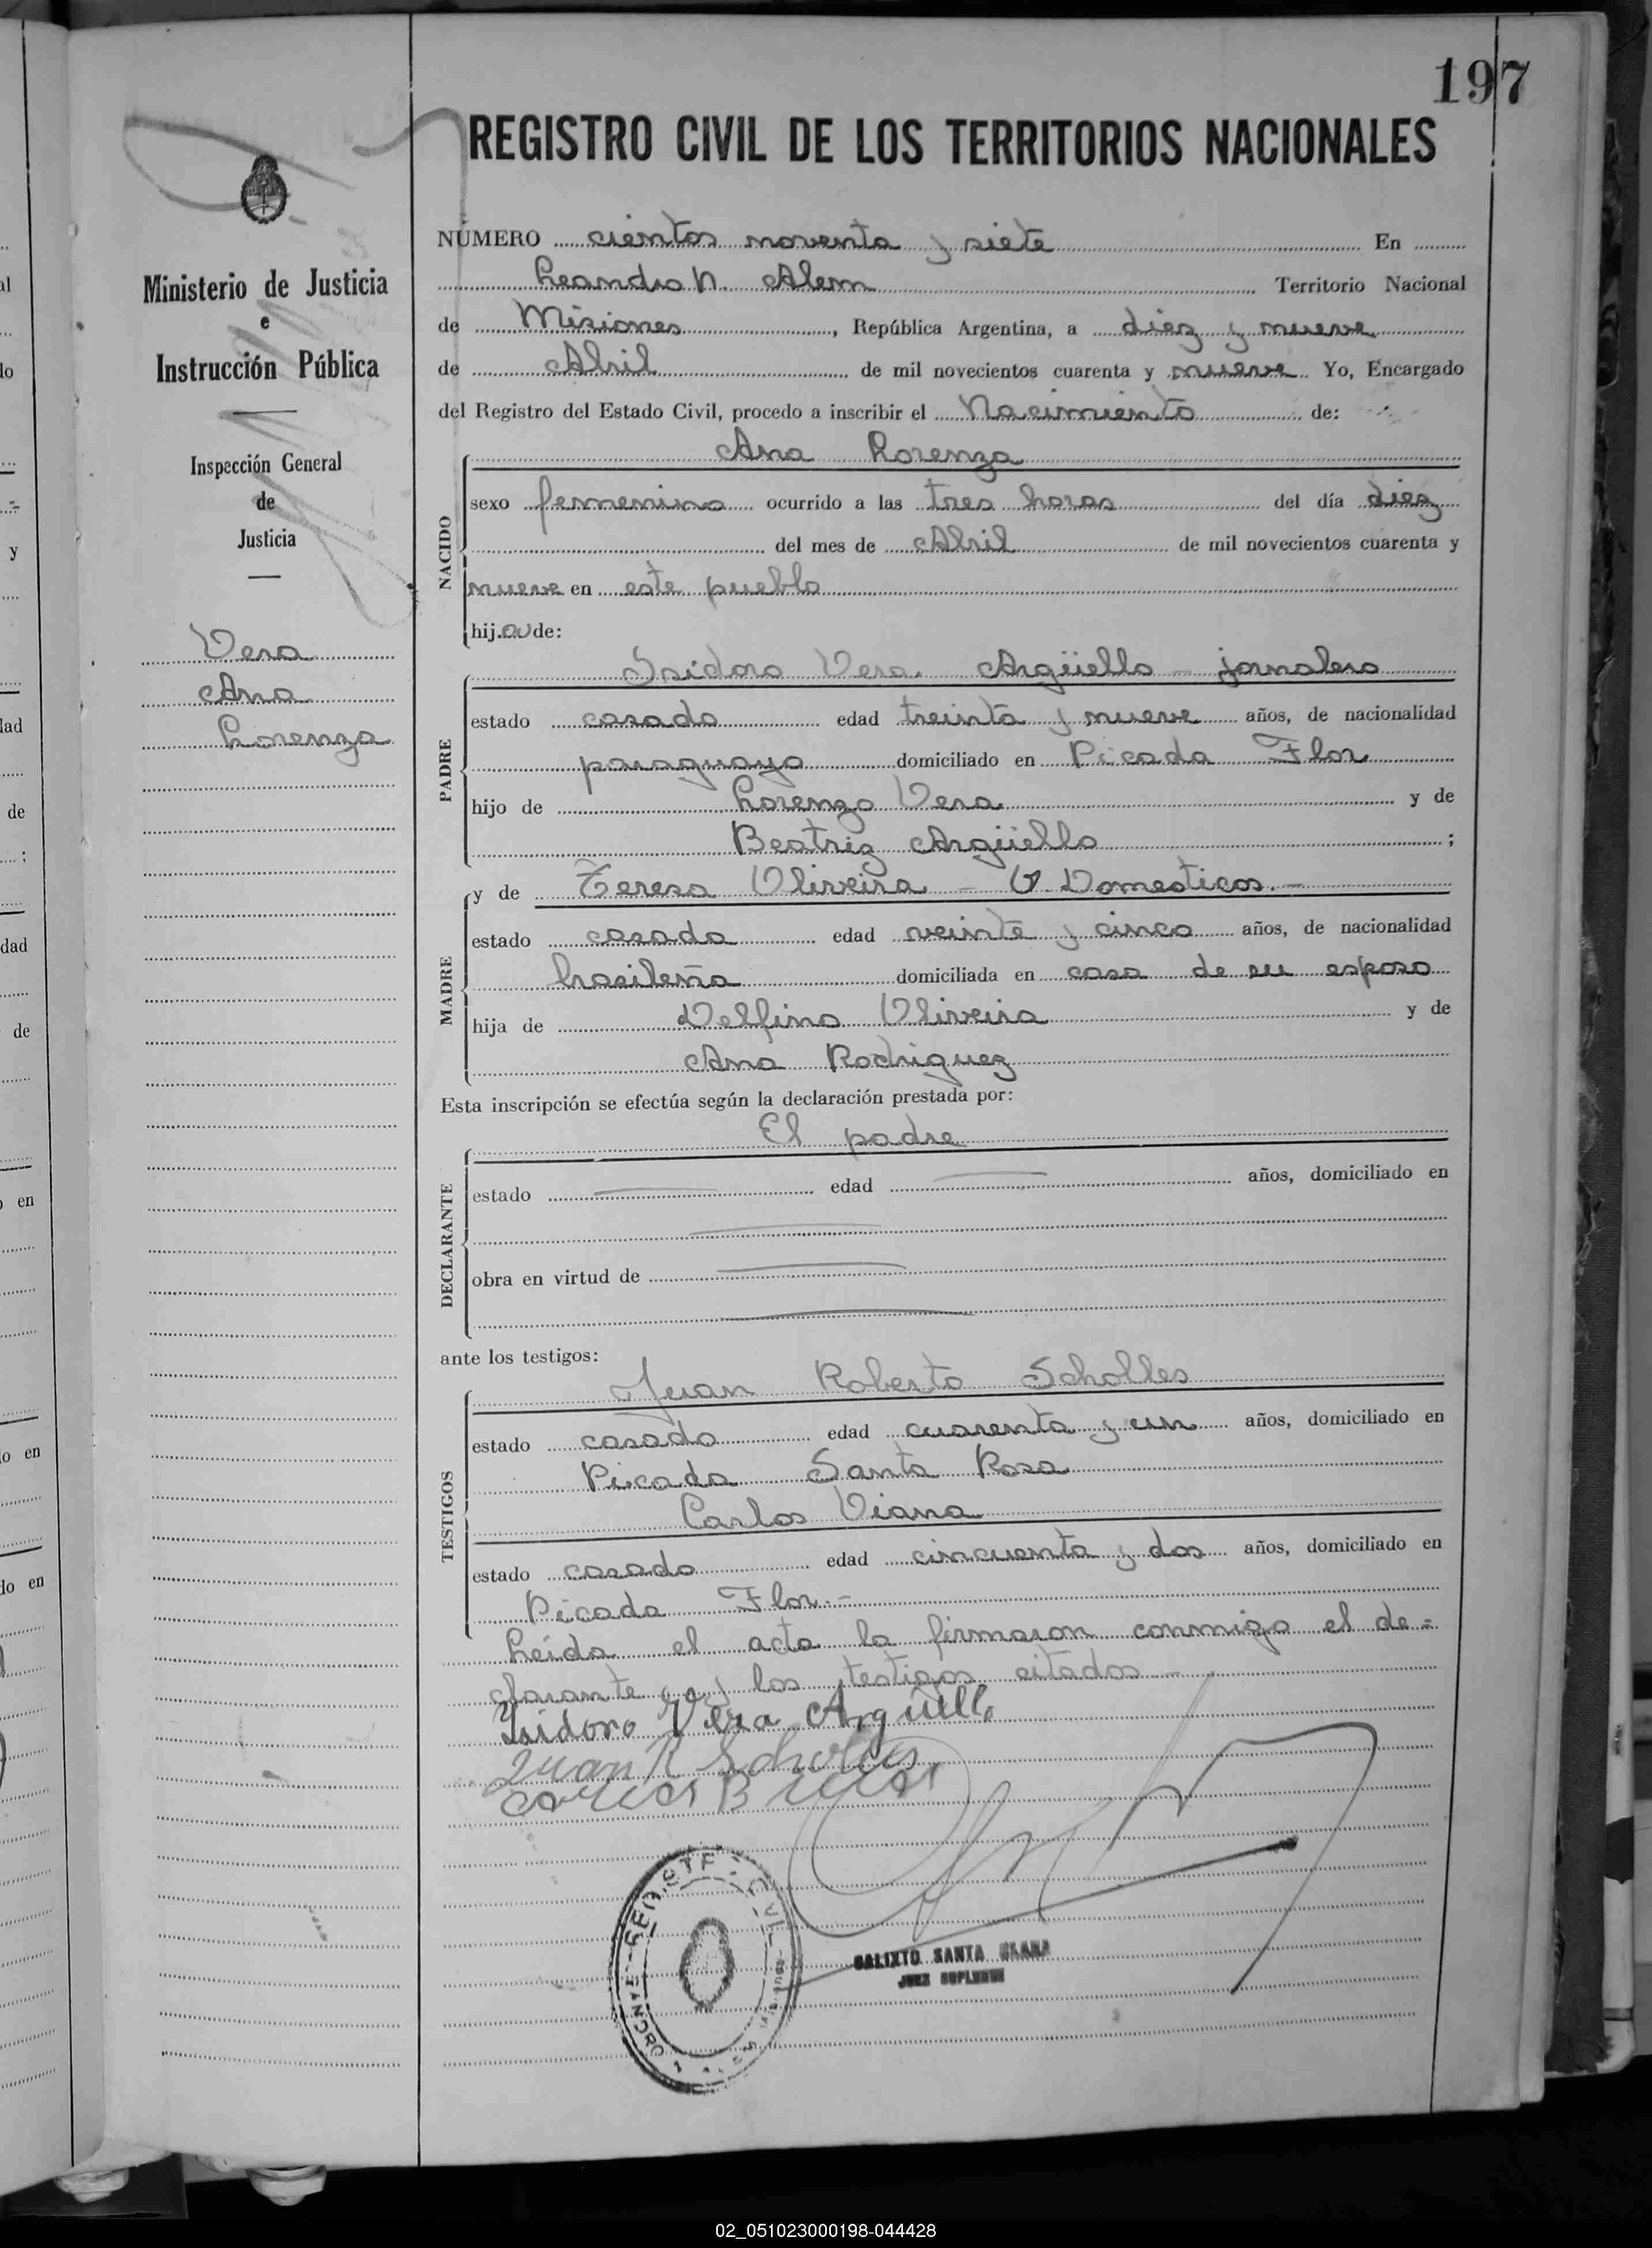 197
REGISTRO CIVIL DE LOS TERRITORIOS NACIONALES
Ministerio de Justicia
e
Instrucción Pública
Inspección General
de
Justicia
Vera
Ana
Lorenza
NÚMERO cientos noventa y siete En
Leandro N. Alem Territorio Nacional
de Misiones, República Argentina, a diez y nueve
de Abril de mil novecientos cuarenta y nueve Yo, Encargado
del Registro del Estado Civil, procedo a inscribir el Nacimiento de:
Ana Lorenza
NACIDO
sexo femenino ocurrido a las tres horas del día diez
del mes de Abril de mil novecientos cuarenta y
nueve en este pueblo
hija de:
Isidoro Vera Argüello - jornalero
PADRE
estado casado edad treinta y nueve años, de nacionalidad
paraguayo domiciliado en Picada Flor
hijo de Lorenzo Vera y de
Beatriz Argüello ;
y de Teresa Oliveira - Q. Domesticos.-
MADRE
estado casada edad veinte y cinco años, de nacionalidad
brasileña domiciliada en casa de su esposo
hija de Delfino Oliveira y de
Ana Rodriguez
Esta inscripción se efectúa según la declaración prestada por:
El padre
DECLARANTE
estado edad años, domiciliado en
obra en virtud de
ante los testigos:
Juan Roberto Scholles
TESTIGOS
estado casado edad cuarenta y un años, domiciliado en
Picada Santa Rosa
Carlos Viana
estado casado edad cincuenta y dos años, domiciliado en
Picada Flor.-
Leída el acta la firmaron conmigo el de=
clarante y los testigos citados -
Isidoro Vera Argüello
Juan R Scholles
CALIXTO SANTA CLARA
JUEZ SUPLENTE
02_051023000198-044428